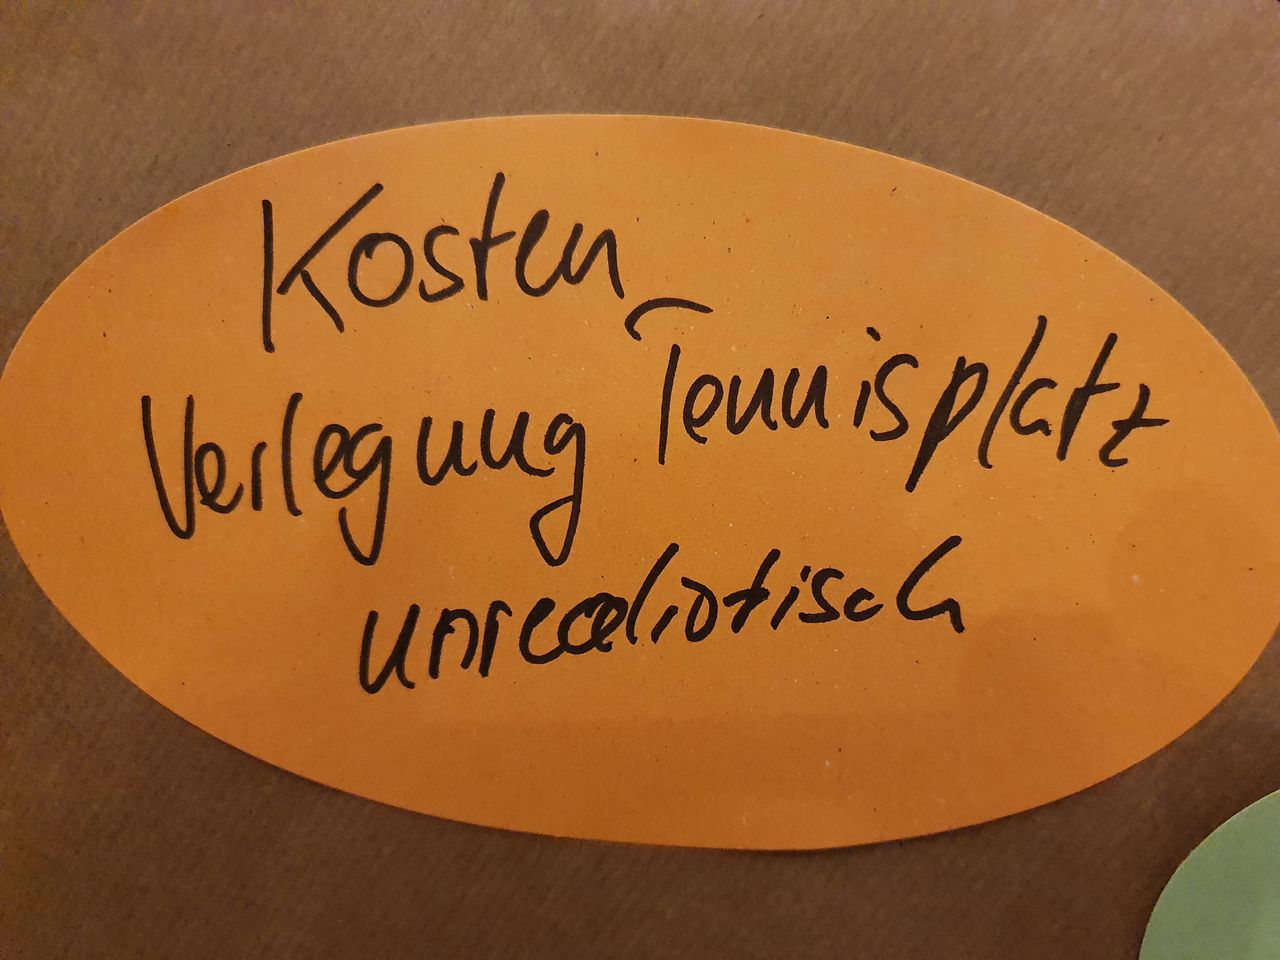 Kosten
Verlegung Tennisplatz
unrealistisch